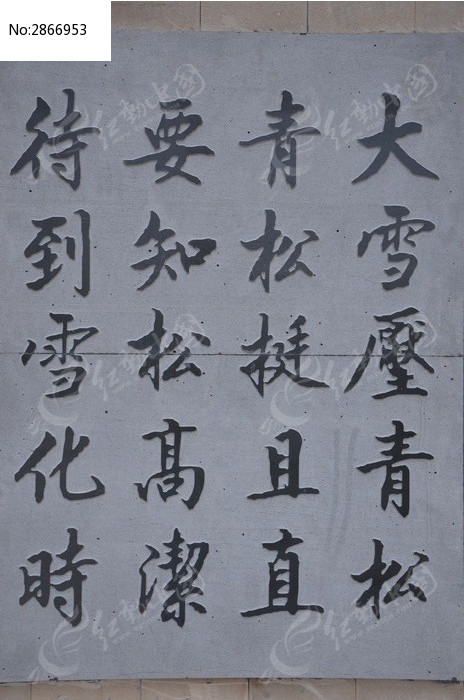 No:2866953
大雪壓青松
青松挺且直
要知松高潔
待到雪化時